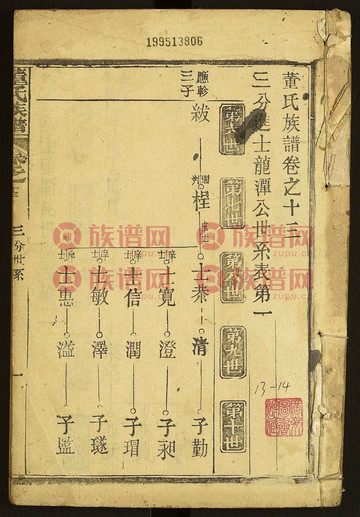 199513806
董氏族譜卷之十三
二分進士龍潭公世系表第一
第六世
第七世
第八世
第九世
第十世
應軫三子
紱
桎
士泰
清
子勤
庠士
士寬
澄
子昶
庠士
士信
潤
子瑁
庠士
士敏
澤
子璲
庠士
士惠
溢
子㼭
13-14
董氏族譜
三分世系
一
族谱网
族谱网
族谱网